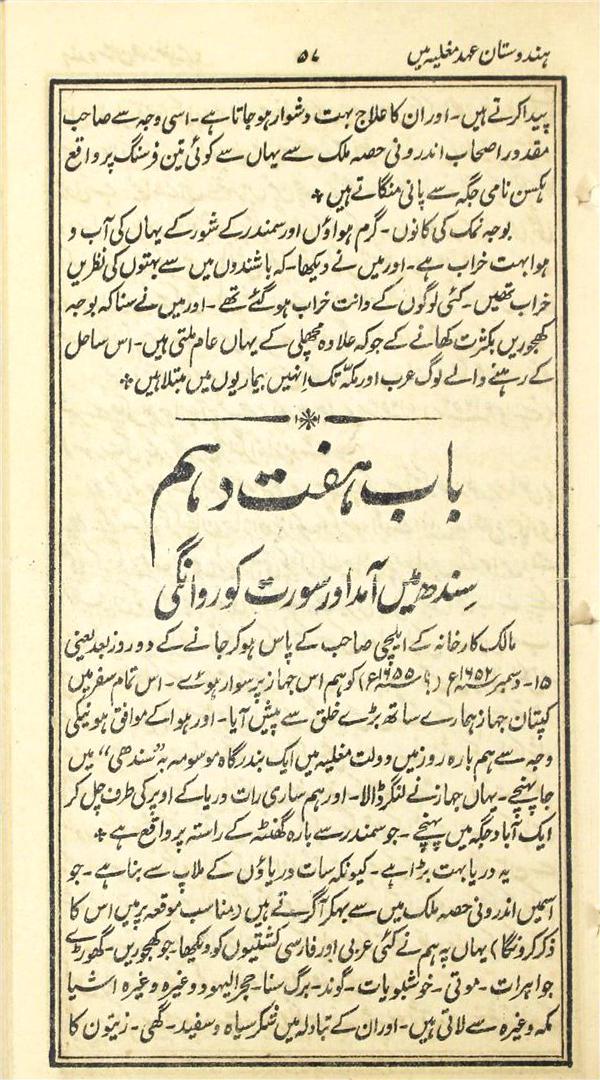 ہندوستان عہد مغلیہ میں
۵۷
پیدا کرتے ہیں۔ اور ان کا علاج بہت دشوار ہو جاتا ہے۔ اسی وجہ سے صاحب
مقدور اصحاب اندرونی حصہ ملک سے یہاں سے کوئی تین فرسنگ پر واقع
ہکسن نامی جگہ سے پانی منگاتے ہیں ٭
بوجہ نمک کی کانوں۔ گرم ہواؤں اور سمندر کے شور کے یہاں کی آب و
ہوا بہت خراب ہے۔ اور میں نے دیکھا۔ کہ باشندوں میں سے بہتوں کی نظریں
خراب تھیں۔ کئی لوگوں کے دانت خراب ہو گئے تھے۔ اور میں نے سنا کہ بوجہ
کھجوریں بکثرت کھانے کے جو کہ علاوہ مچھلی کے یہاں عام ملتی ہیں۔ اس ساحل
کے رہنے والے لوگ عرب اور مکہ تک انہیں بیماریوں میں مبتلا ہیں ٭
باب ہفت دہم
سندھ میں آمد اور سورت کو روانگی
مالک کارخانہ کے ایلچی صاحب کے پاس ہو کر جانے کے دو روز بعد یعنی
۱۵۔ دسمبر ۱۶۵۲ء (؟ ۱۶۵۵ء) کو ہم اس جہاز پر سوار ہوئے۔ اس تمام سفر میں
کپتان جہاز ہمارے ساتھ بڑے خلق سے پیش آیا۔ اور ہوا کے موافق ہونیکی
وجہ سے ہم بارہ روز میں دولت مغلیہ میں ایک بندرگاہ موسومہ بہ "سندھی" میں
جا پہنچے۔ یہاں جہاز نے لنگر ڈالا۔ اور ہم ساری رات دریا کے اوپر کی طرف چل کر
ایک آباد جگہ میں پہنچے۔ جو سمندر سے بارہ گھنٹہ کے راستہ پر واقع ہے ٭
یہ دریا بہت بڑا ہے۔ کیونکہ سات دریاؤں کے ملاپ سے بنا ہے۔ جو
اسمیں اندرونی حصہ ملک میں سے بہکر آ گرتے ہیں (مناسب موقعہ پر میں اس کا
ذکر کرونگا) یہاں پہ ہم نے کئی عربی اور فارسی کشتیوں کو دیکھا۔ جو کھجوریں۔ گھوڑے
جواہرات۔ موتی۔ خوشبویات۔ گوند۔ برگ سنا۔ حجر الیہود وغیرہ وغیرہ اشیا
مکہ وغیرہ سے لاتی ہیں۔ اور ان کے تبادلہ میں شکر سیاہ و سفید۔ گھی۔ زیتون کا